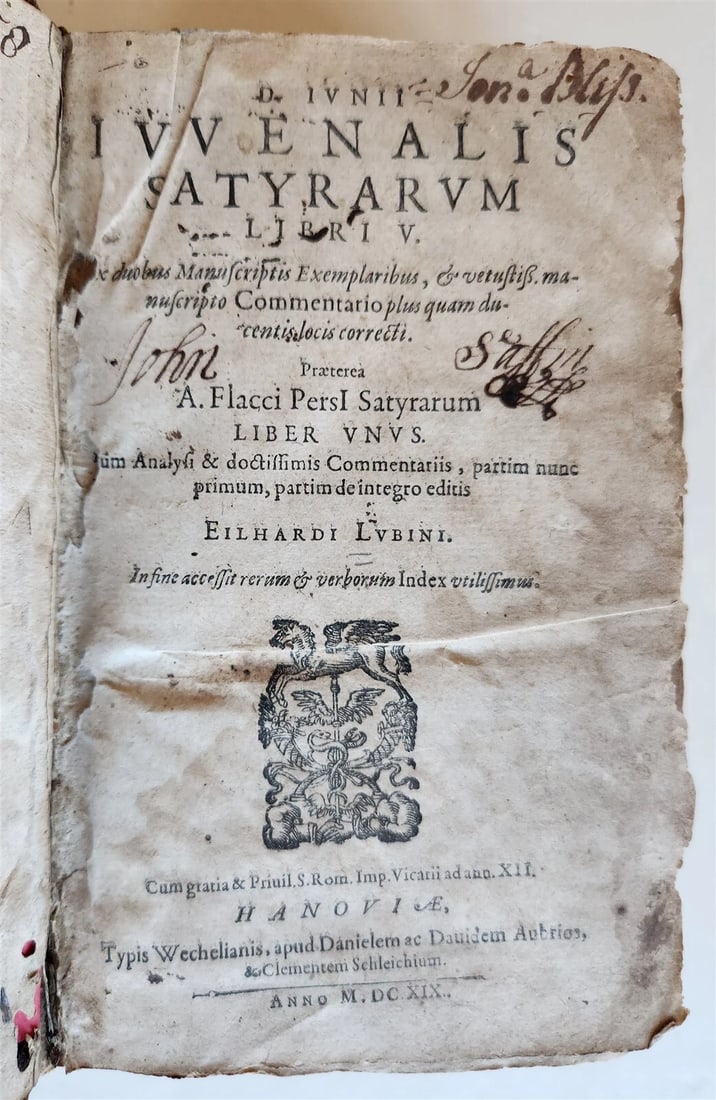 8
D. IVNII Jon.ª Bliſs.
IVVENALIS
SATYRARVM
LIBRI V.
Ex duobus Manuſcriptis Exemplaribus, & vetuſtiſs. ma-
nuſcripto Commentario plus quam du-
centis locis correcti.
John
Præterea
A. Flacci PersI Satyrarum
LIBER VNVS.
Cum Analyſi & doctiſſimis Commentariis, partim nunc
primum, partim de integro editis
EILHARDI LVBINI.
In fine acceſſit rerum & verborum Index vtiliſſimus.
Cum gratia & Priuil. S. Rom. Imp. Vicarii ad ann. XII.
HANOVIÆ,
Typis Wechelianis, apud Danielem ac Dauidem Aubrios,
& Clementem Schleichium.
ANNO M. DC. XIX.